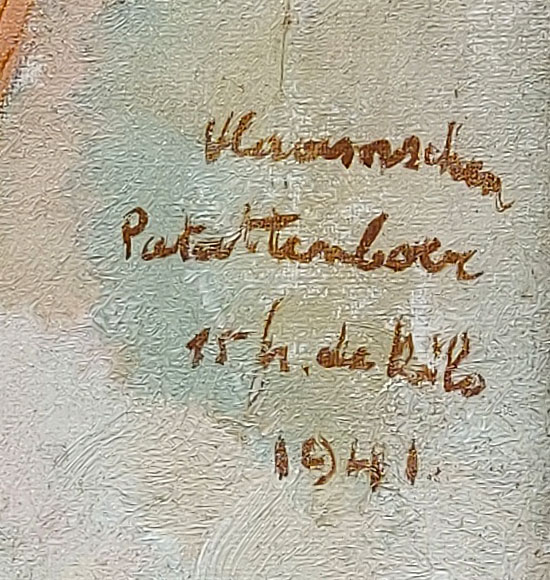 Vlaamschen
Patattenboer
15 fr. de kilo
1941